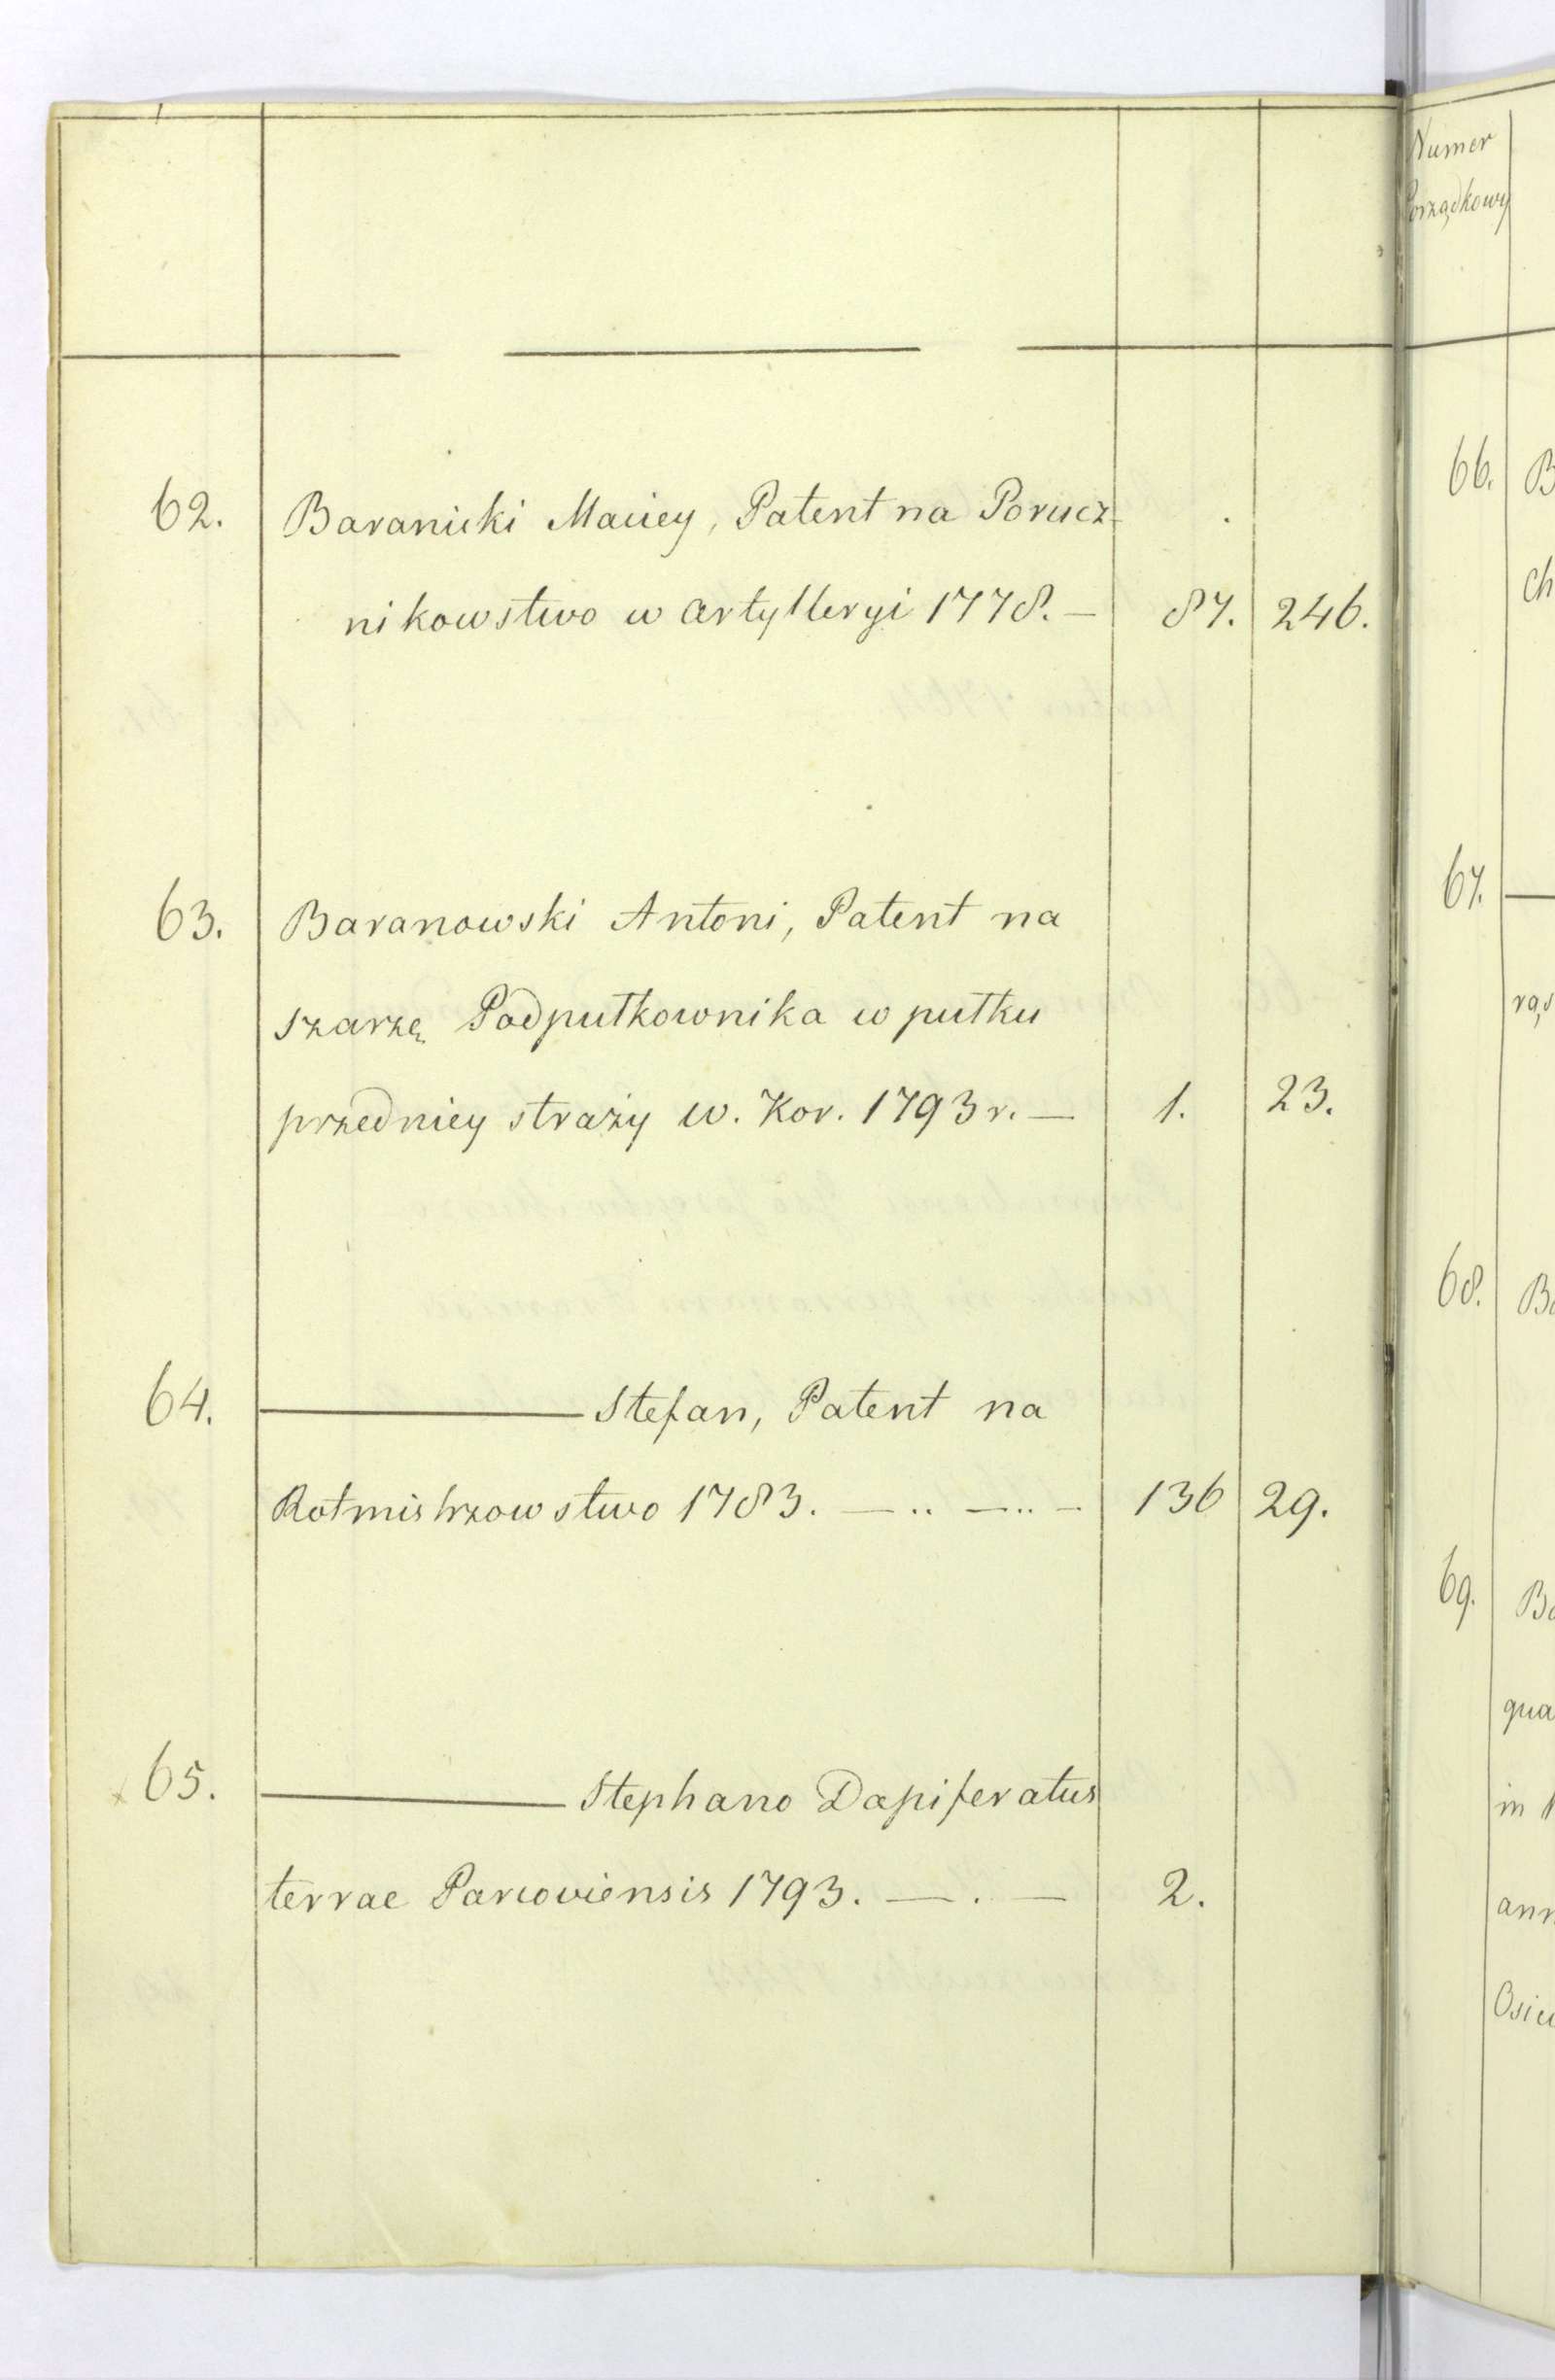 62. Baranicki Maciey, Patent na Porucz-
nikowstwo w artylleryi 1778. — 87. 246.
63. Baranowski Antoni, Patent na
szarżę Podpułkownika w pułku
przedniey straży w. Kor. 1793 r. — 1. 23.
64. ——— Stefan, Patent na
Rotmistrzowstwo 1783. — .. — .. - 136 29.
65. ——— Stephano Dapiferatus
terrae Parcoviensis 1793. — . — 2.
Numer
Porządkowy
66. B
Ch
67. —
68. Ba
69. Ba
qua
in
ann